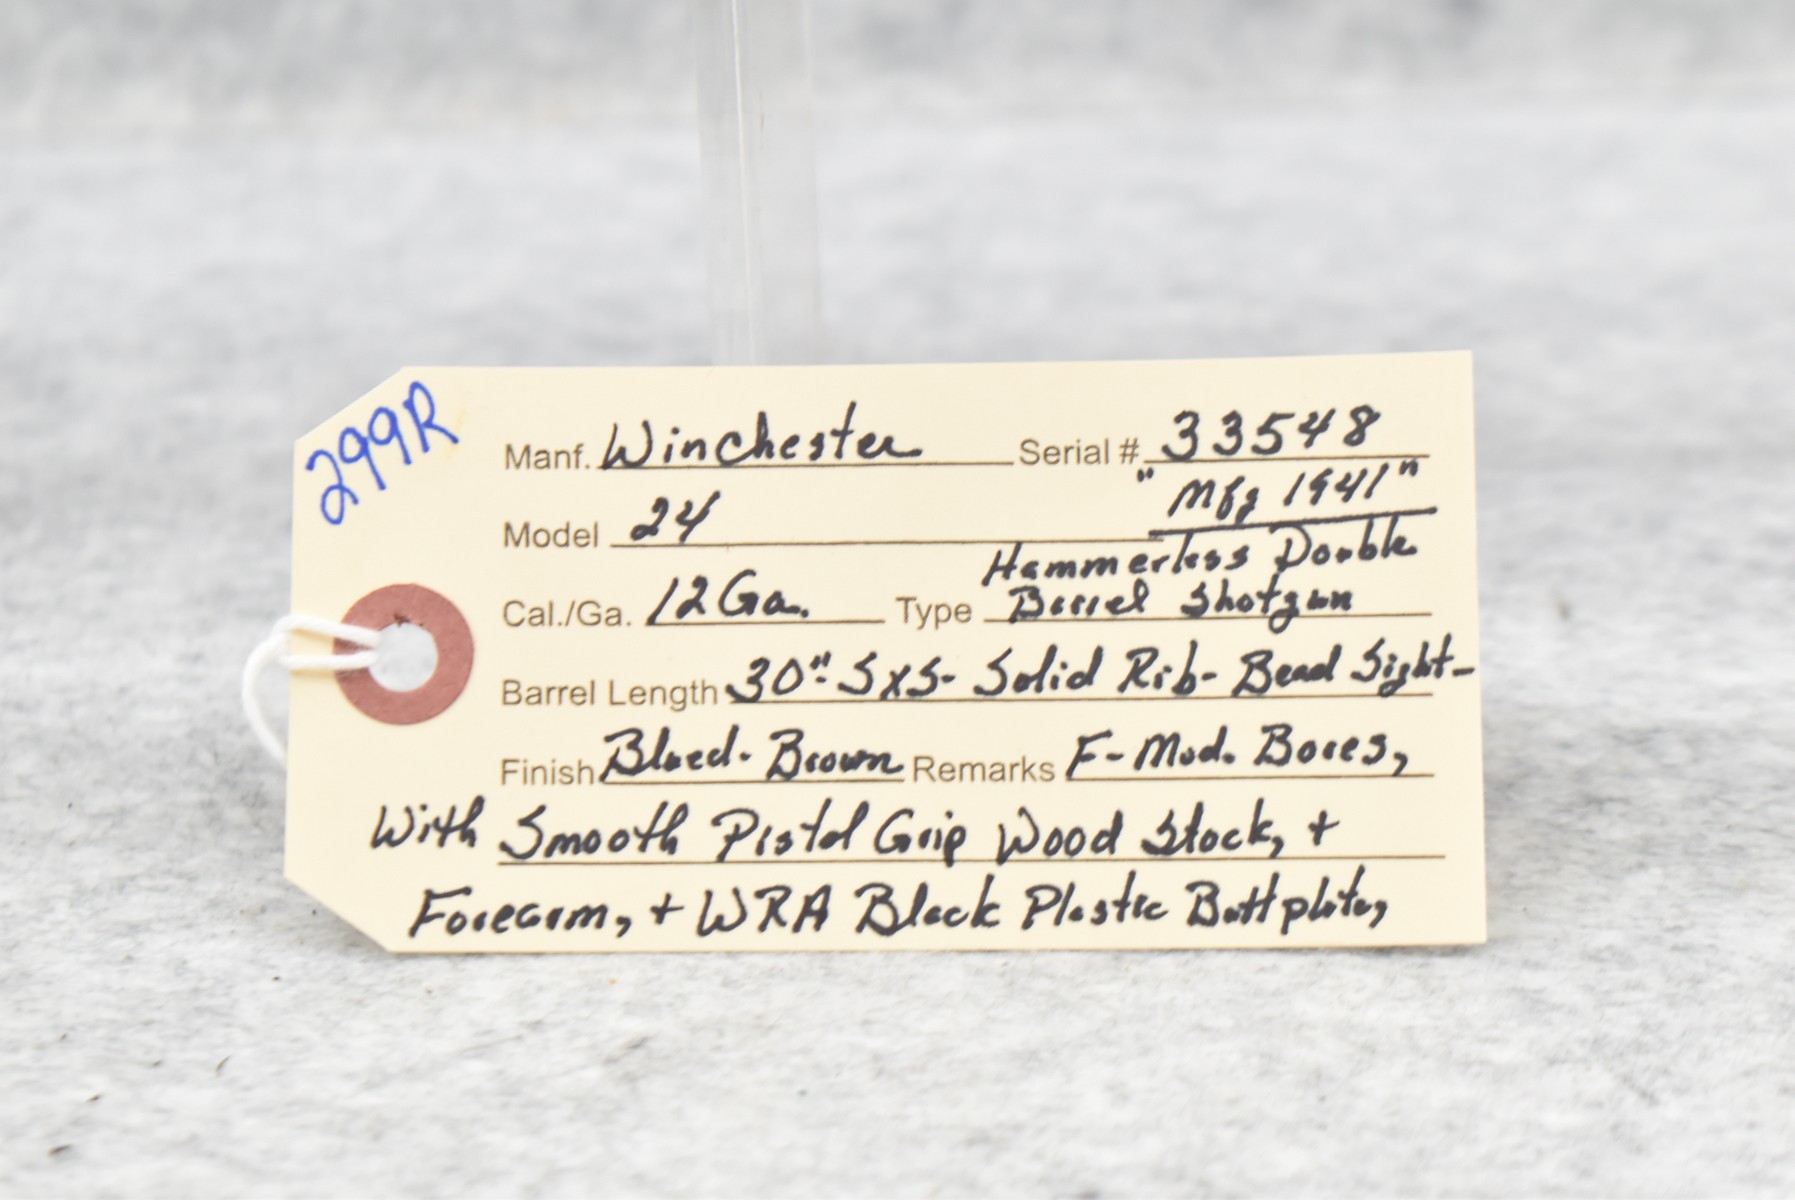 299R
Manf. Winchester Serial # 33548
Model 24 "Mfg 1941"
Hammerless Double
Cal./Ga. 12 Ga. Type Barrel Shotgun
Barrel Length 30" SxS- Solid Rib- Bead Sight-
Finish Blued- Brown Remarks F-Mod. Bores,
With Smooth Pistol Grip Wood Stock, +
Forearm, + WRA Black Plastic Buttplate,